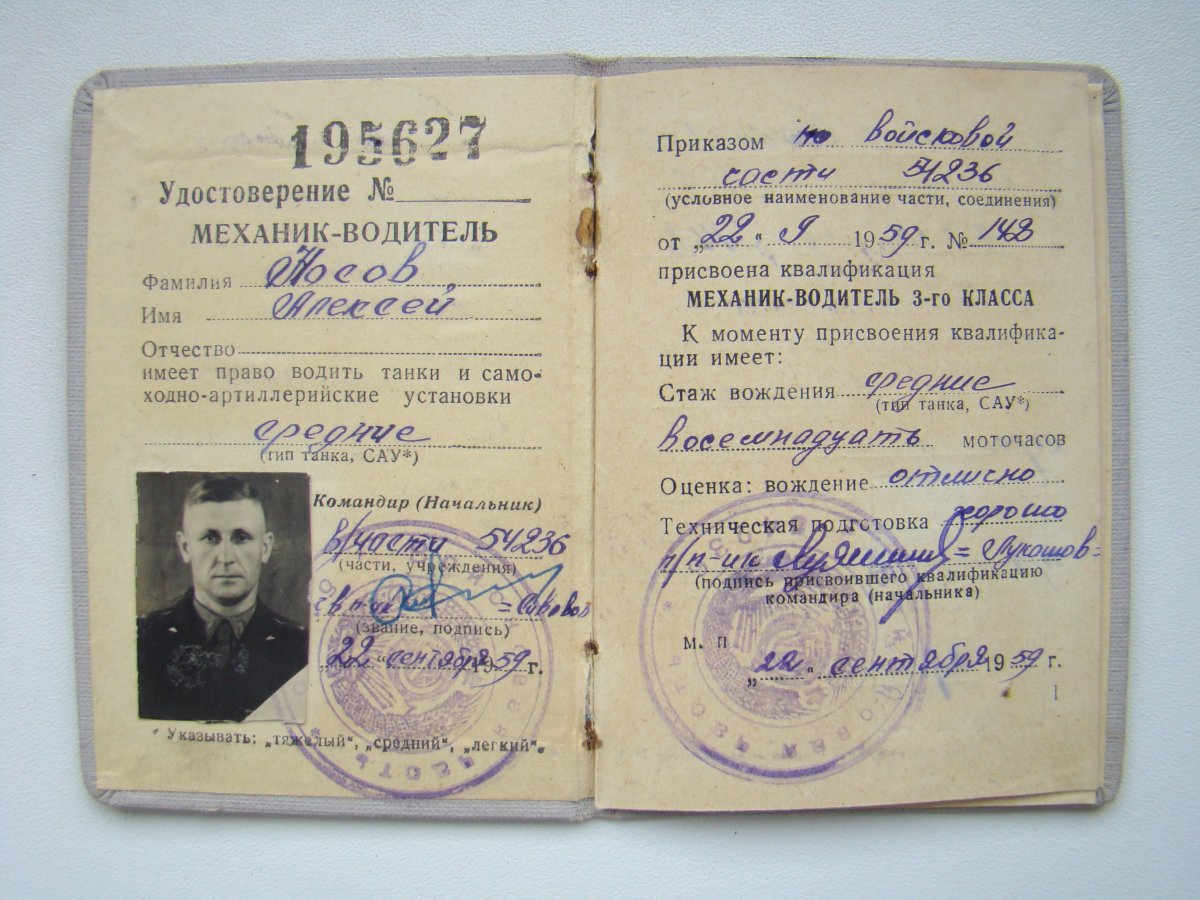 195627
Удостоверение №
МЕХАНИК-ВОДИТЕЛЬ
Фамилия Носов
Имя Алексей
Отчество
имеет право водить танки и само-
ходно-артиллерийские установки
средние
(тип танка, САУ*)
Командир (Начальник)
в/части 54236
(части, учреждения)
(звание, подпись)
"22" сентября 1959 г.
* Указывать: „тяжелый“, „средний“, „легкий“.
Приказом по войсковой
части 54236
(условное наименование части, соединения)
от „22“ 9 1959 г. № 142
присвоена квалификация
МЕХАНИК-ВОДИТЕЛЬ 3-го КЛАССА
К моменту присвоения квалифика-
ции имеет:
Стаж вождения средние
(тип танка, САУ*)
восемнадцать моточасов
Оценка: вождение отлично
Техническая подготовка хорошо
п/п-ик =Лукашов=
(подпись присвоившего квалификацию
командира (начальника)
м. п.
„22“ сентября 1959 г.